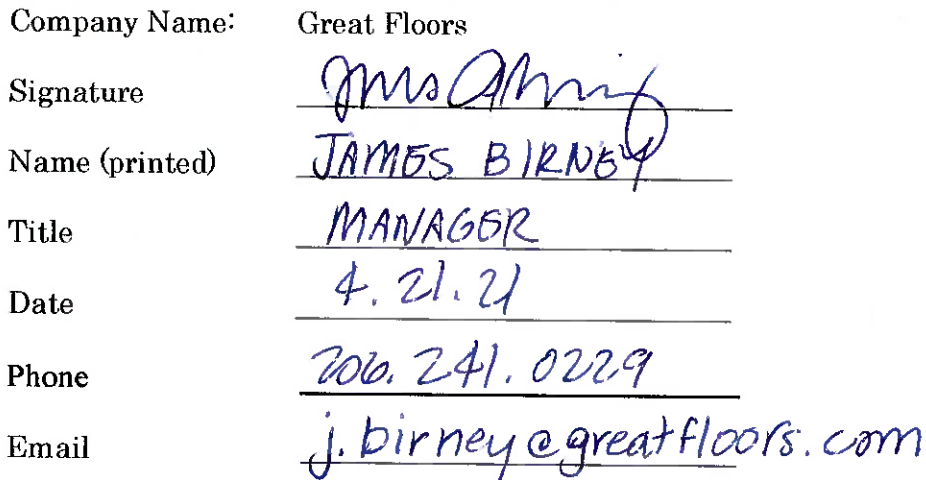 Company Name: Great Floors
Signature
Name (printed) JAMES BIRNEY
Title MANAGER
Date 4.21.21
Phone 206.241.0229
Email j.birney@greatfloors.com